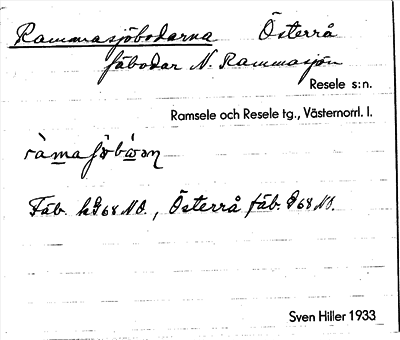 Rammasjöbodarna Österrå
fäbodar N. Rammasjön
Resele s:n.
Ramsele och Resele tg., Västernorrl. l.
Fäb. 68 NO., Österrå fäb. 68 N.
Sven Hiller 1933